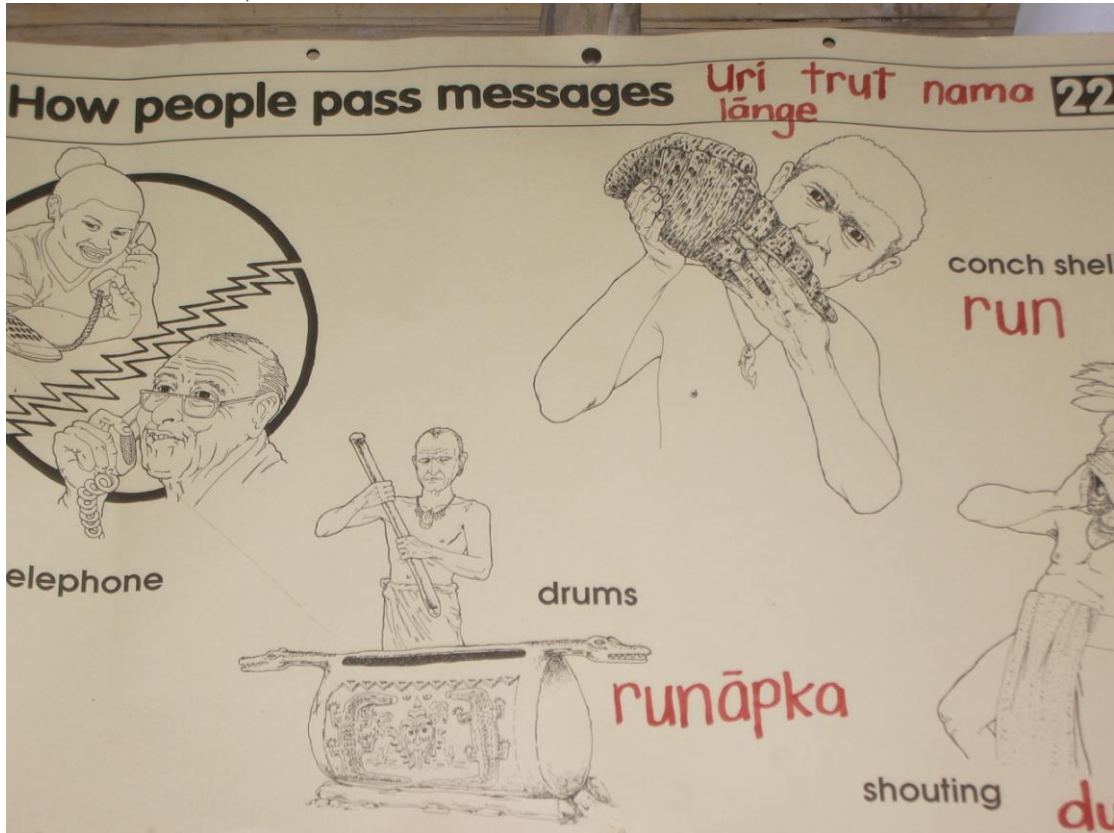 How people pass messages Uri trut nama 22
lānge
conch shel
run
elephone
drums
runāpka
shouting
du